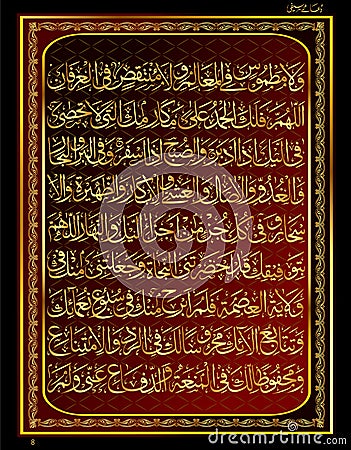 دعائے سیفی
ولا مطموس في المعالم ولا منتقص في العرفان
اللهم فلك الحمد على مكارمك التي لا تحصى
في الليل اذا ادبر والصبح اذا اسفر وفي البر والبحار
والغدو والآصال والعشي والابكار والظهيرة والا
سحار وفي كل جزء من اجزاء الليل والنهار اللهم
بتوفيقك قد احضرتني النجاة وجعلتني منك في
ولاية العصمة فلم ابرح منك في سبوغ نعمائك
وتتابع آلائك محروسا لك في الرد والامتناع
ومحفوظا لك في المنعة والدفاع عني ولم
8
dreamstime.com